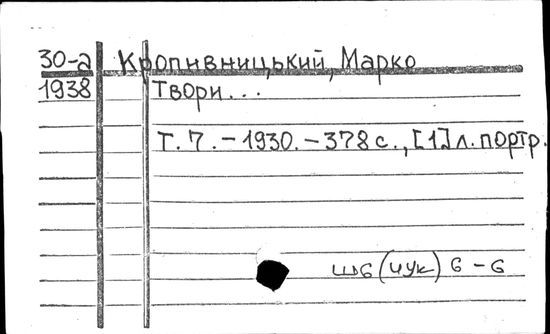 30-а Кропивницький, Марко
1938 Твори...
Т. 7. – 1930. – 378 с., [1] л. портр.
шб (чук) 6 – 6